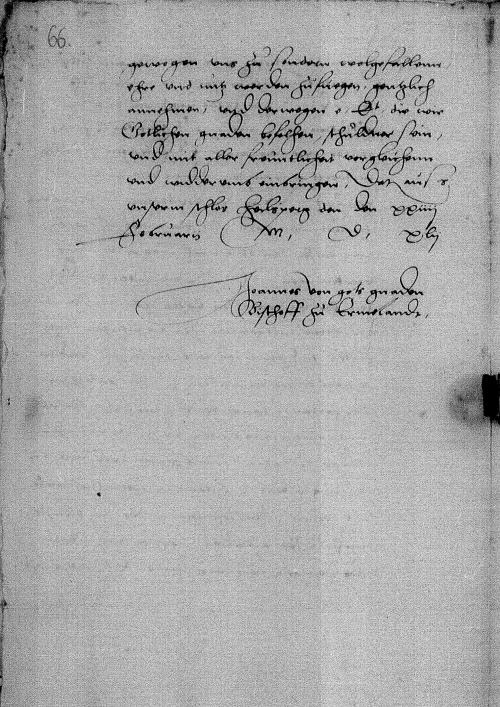 66.
gewogen uns zu sondern wolgefallenn
ehre und nutz werden zufuegen, gentzlich
annehmen, und derwegen e. Et. die wir
Gotlichen gnaden befelhen, schuldner sein,
und mit aller freuntlicheit vergleichenn
und widderumb einbringen, Dat aus
unserm schlos Heilsperg den den xxiiij
Februarij M. D. xlij
Joannes von gots gnaden
Bischoff zu Ermelandt.